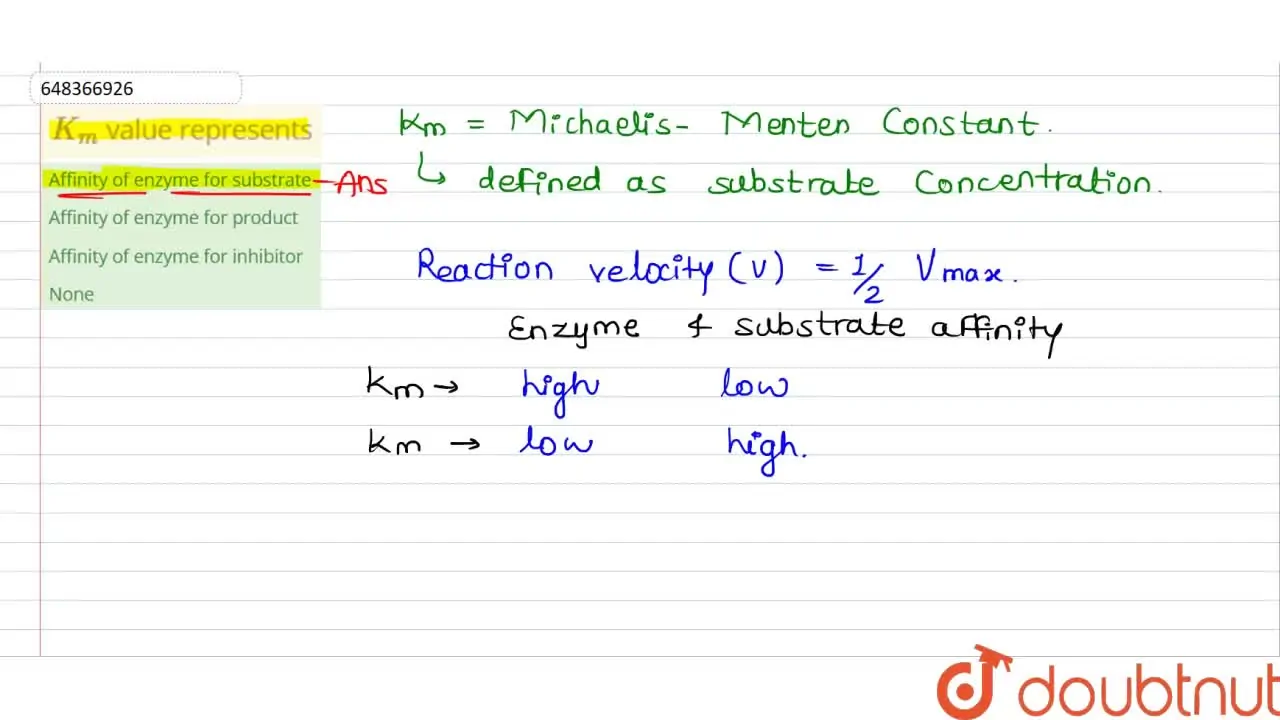 648366926
Km value represents
Affinity of enzyme for substrate - Ans
Affinity of enzyme for product
Affinity of enzyme for inhibitor
None
Km = Michaelis- Menten Constant.
↳ defined as substrate Concentration.
Reaction velocity (v) = 1/2 Vmax.
Enzyme & substrate affinity
Km → high low
Km → low high.
doubtnut